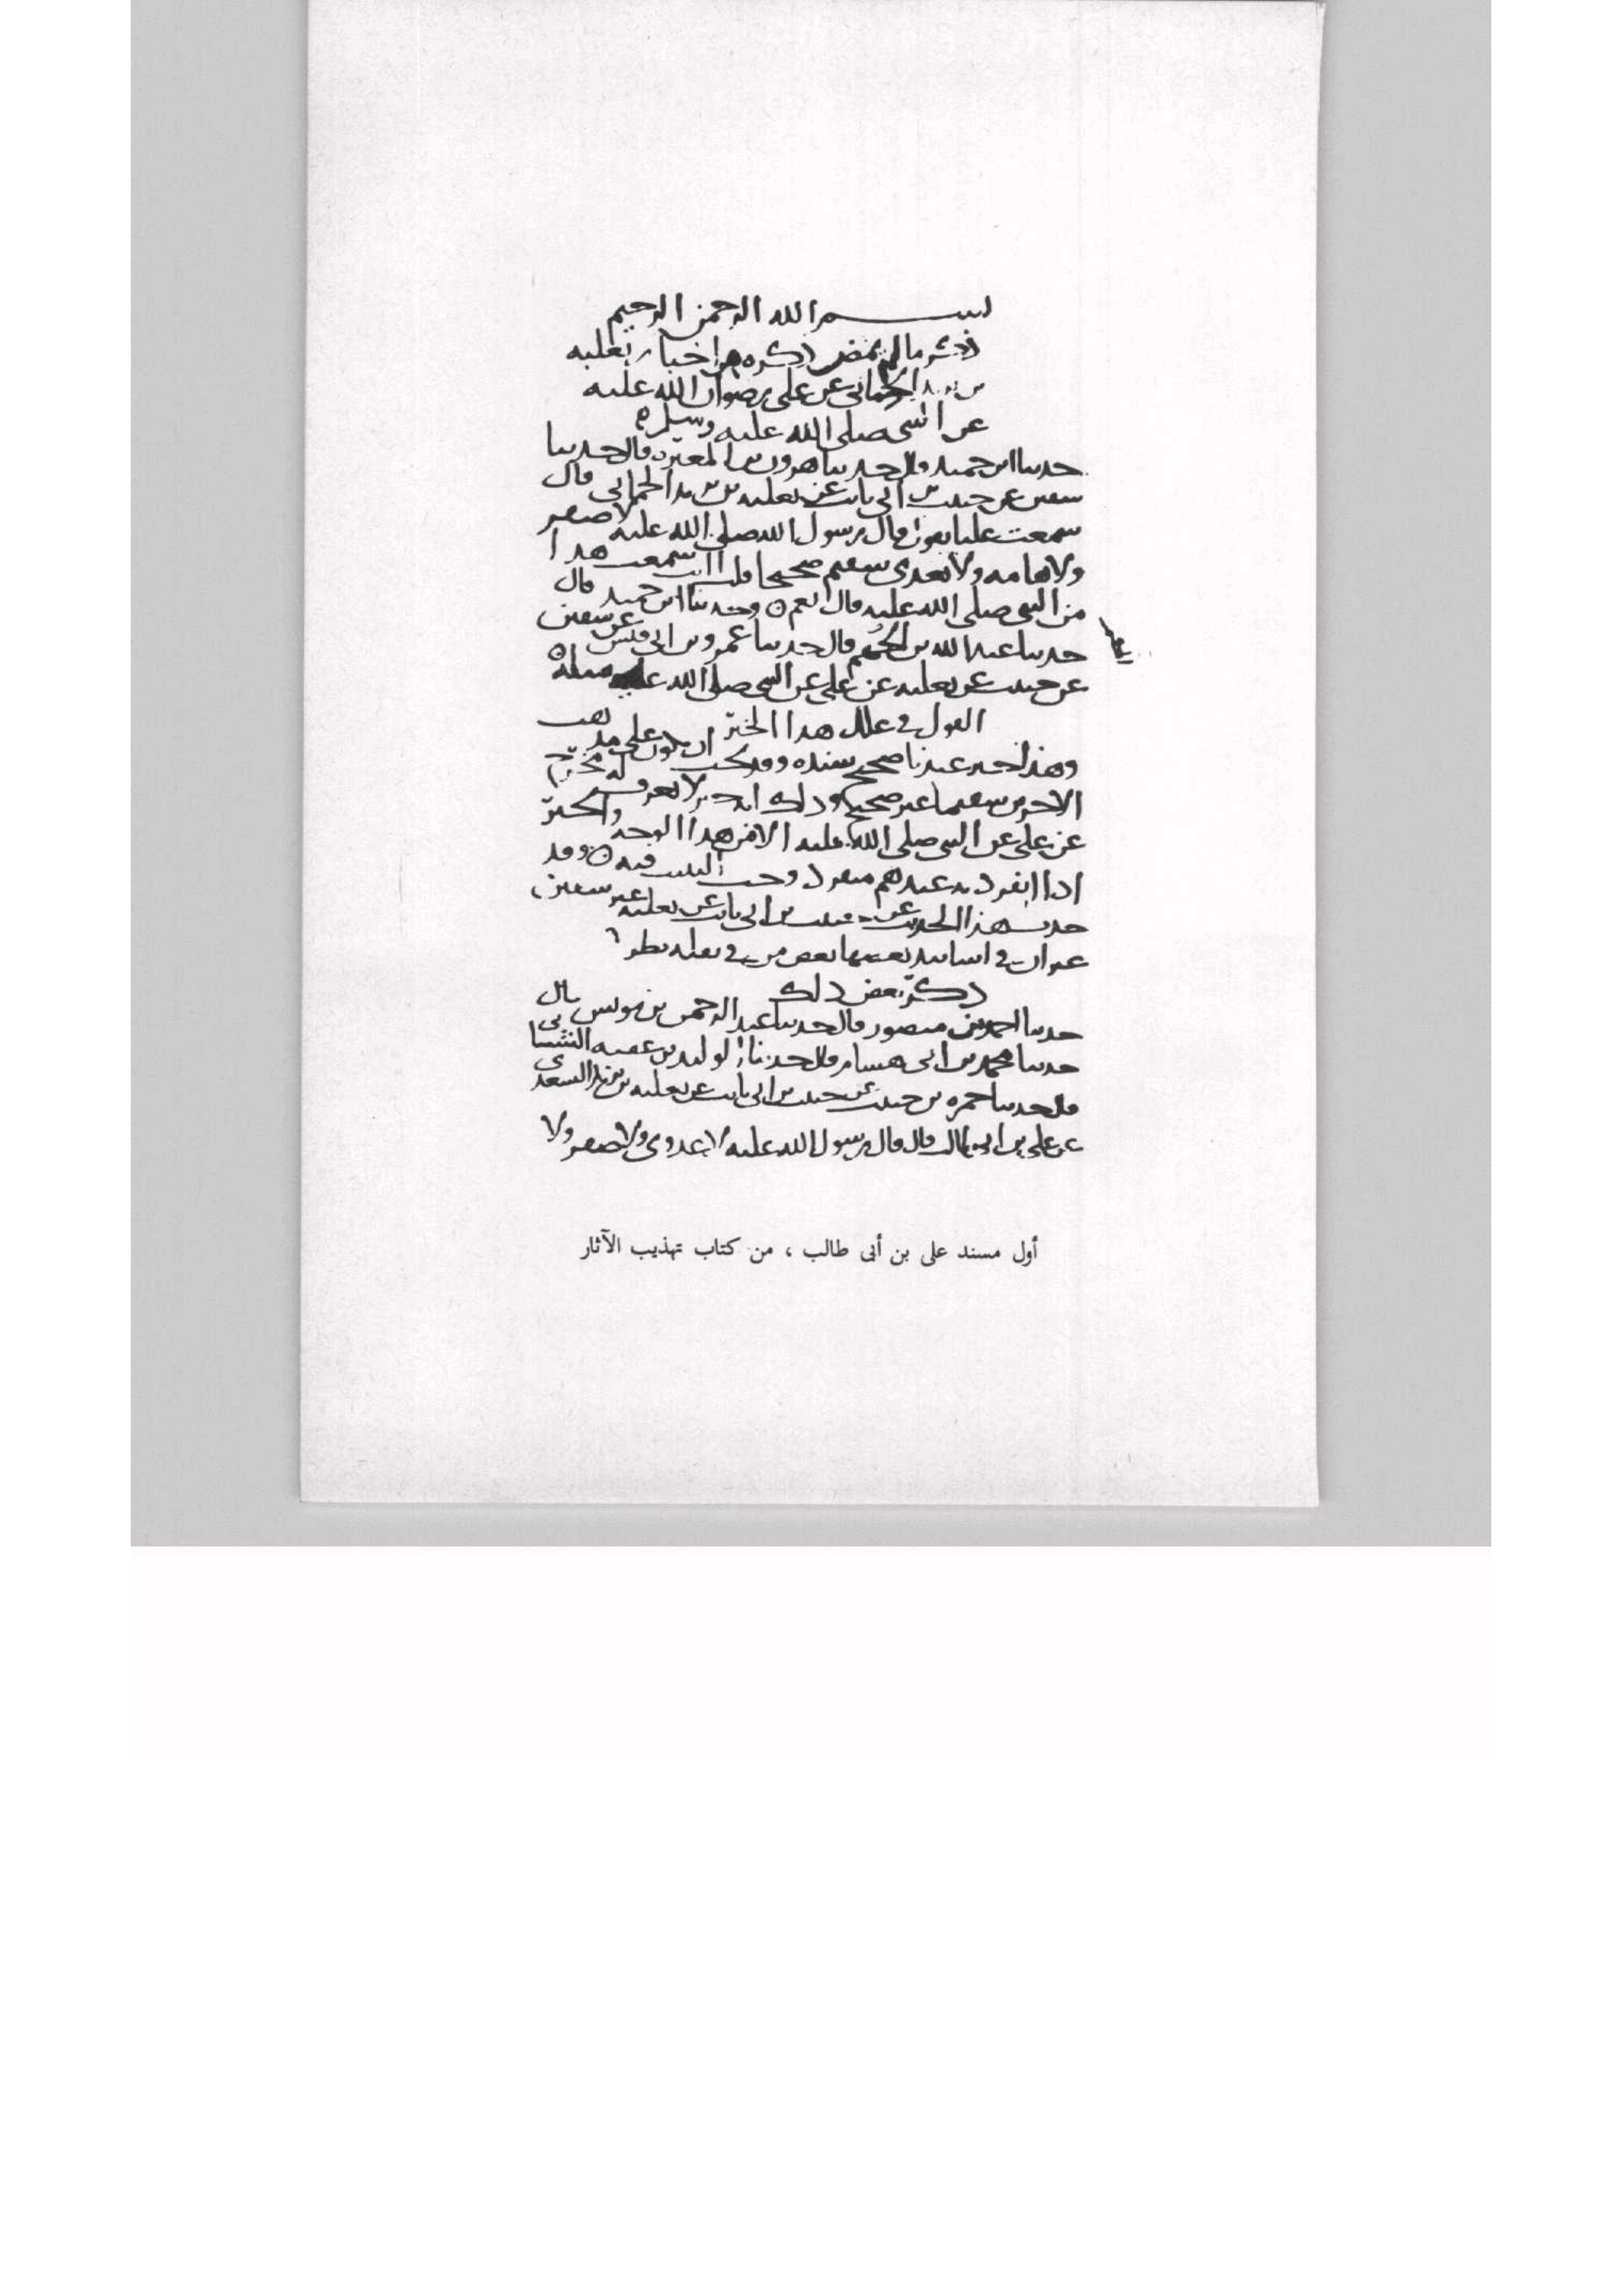 بسم الله الرحمن الرحيم
ذكر ما لم يمض ذكره من اخبار ثعلبة
بن يزيد الحماني عن علي رضوان الله عليه
عن النبي صلى الله عليه وسلم
حدثنا ابن حميد قال حدثنا هرون بن المغيرة قال حدثنا
سفين عن حبيب بن ابي ثابت عن ثعلبة بن يزيد الحماني قال
سمعت عليا يقول قال رسول الله صلى الله عليه لا صفر
ولا هامه ولا يعدى سقيم صحيحا قلت اانت سمعت هذا
من النبي صلى الله عليه قال نعم ۝ وحدثنا ابن حميد قال
حدثنا عبد الله بن الجهم قال حدثنا عمرو بن ابي قيس عن سفين
عن حبيب عن ثعلبة عن علي عن النبي صلى الله عليه مثله ۝
القول في علل هذا الخبر
وهذا خبر عندنا صحيح سنده وقد يجب ان يكون على مذهب
الاخرين سقيما غير صحيح وذلك انه خبر لا يعرف له مخرج
عن علي عن النبي صلى الله عليه الا من هذا الوجه والخبر
اذا انفرد به عندهم منفرد وجب التثبت فيه ۝ وقد
حدث هذا الحديث عن حبيب بن ابي ثابت عن ثعلبة غير سفين
غير ان في اسانيد بعضها بعض من في نقله نظر
ذكر بعض ذلك
حدثنا احمد بن منصور قال حدثنا عبد الرحمن بن يونس قال
حدثنا محمد بن ابي هشام قال حدثنا الوليد بن عقبة الشيباني
قال حدثنا حمزه بن حبيب عن حبيب بن ابي ثابت عن ثعلبة بن يزيد السعدي
عن علي بن ابي طالب قال قال رسول الله عليه لا عدوى ولا صفر ولا
أول مسند على بن أبى طالب ، من كتاب تهذيب الآثار